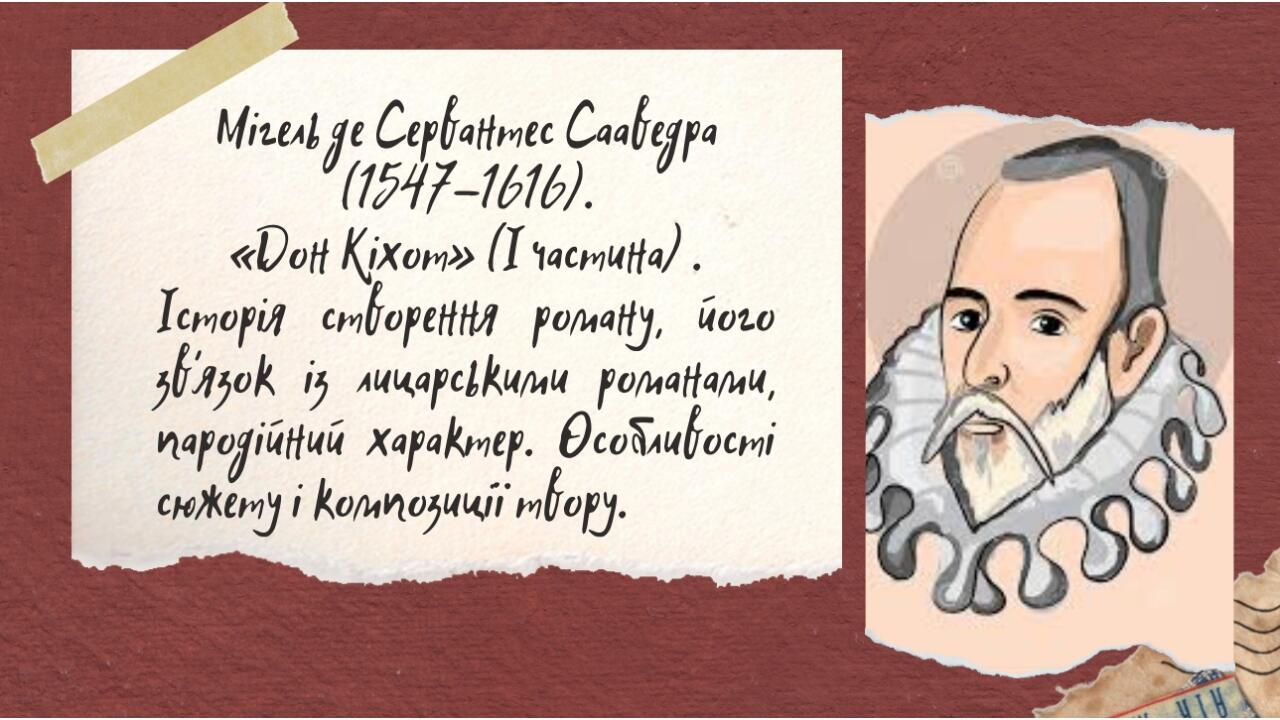 Мігель де Сервантес Сааведра
(1547–1616).
«Дон Кіхот» (І частина) .
Історія створення роману, його
зв'язок із лицарськими романами,
пародійний характер. Особливості
сюжету і композиції твору.